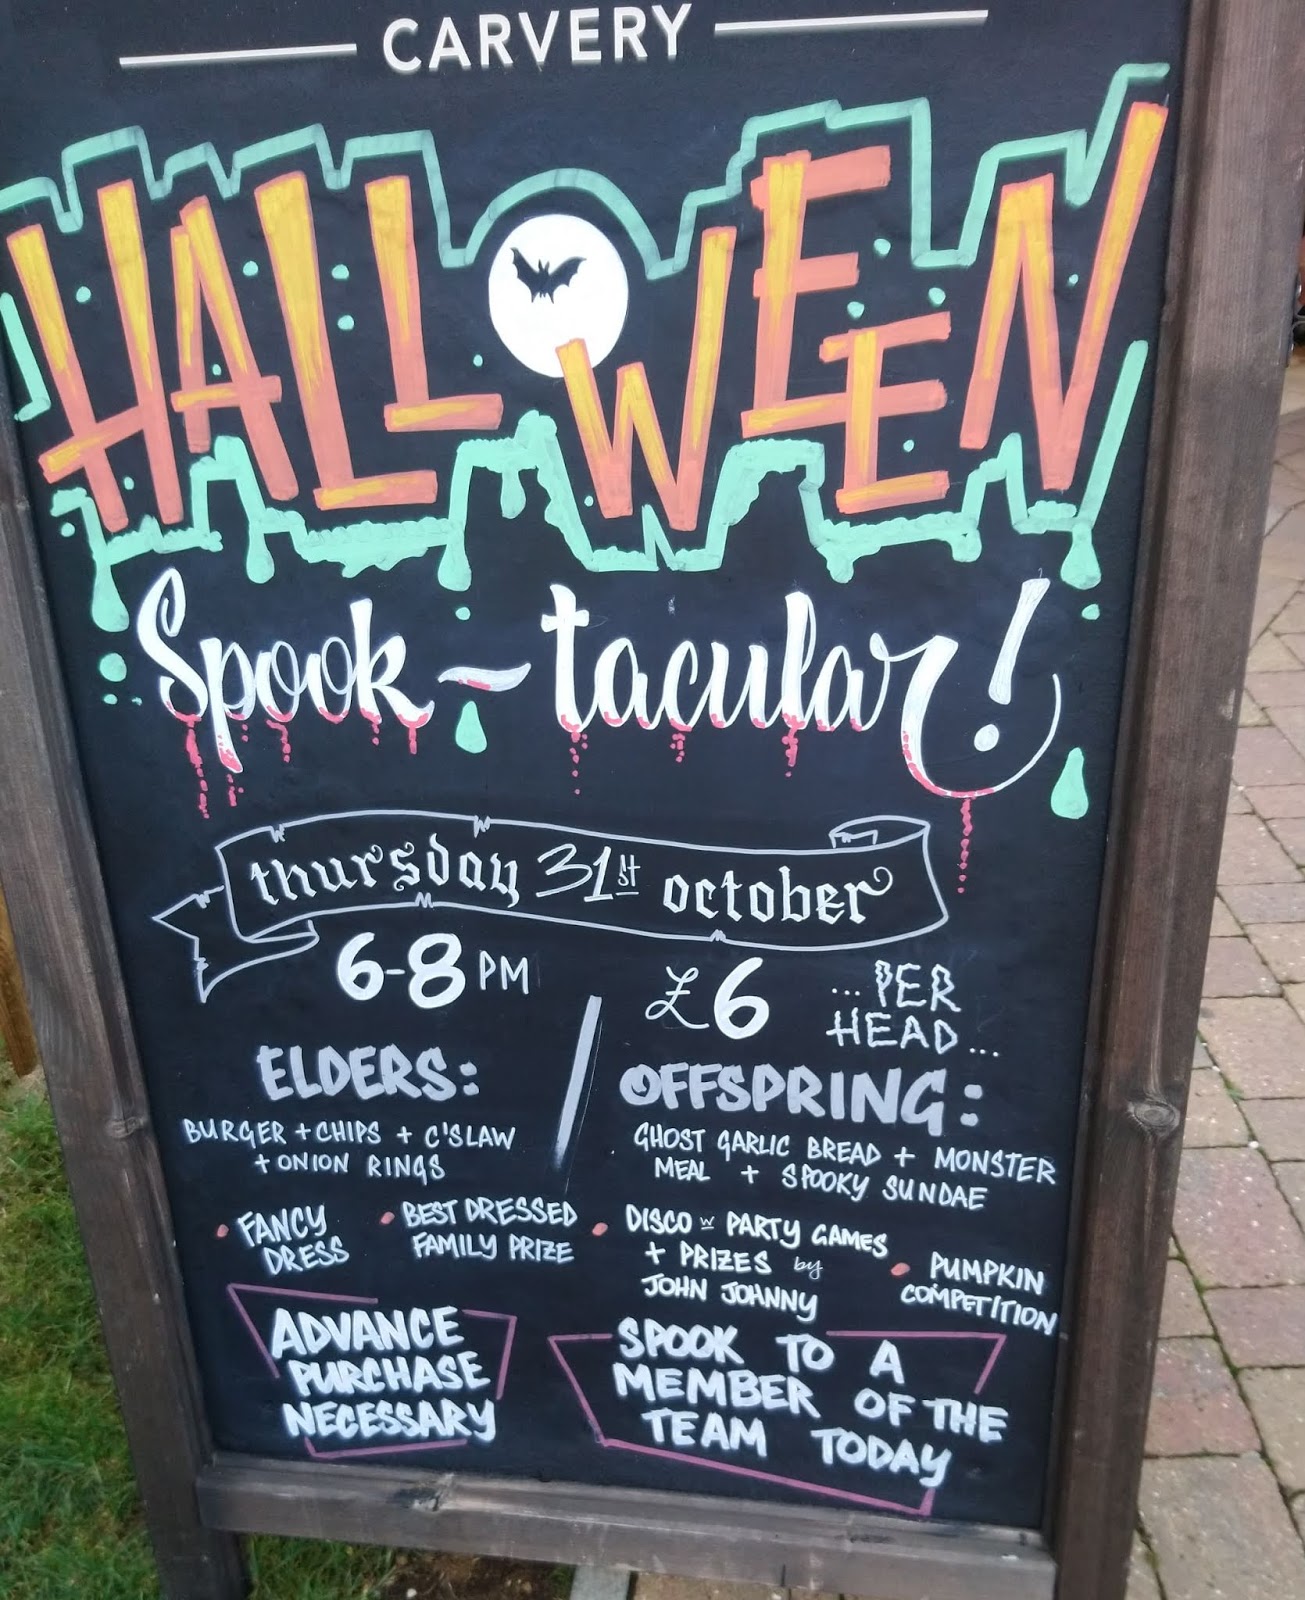 CARVERY
HALLOWEEN
Spook-tacular!
thursday 31st october
6-8 PM
£6 ...PER
HEAD...
ELDERS:
BURGER + CHIPS + C'SLAW
+ ONION RINGS
OFFSPRING:
GHOST GARLIC BREAD + MONSTER
MEAL + SPOOKY SUNDAE
• FANCY
DRESS
• BEST DRESSED
FAMILY PRIZE
• DISCO w PARTY GAMES
+ PRIZES by
JOHN JOHNNY
• PUMPKIN
COMPETITION
ADVANCE
PURCHASE
NECESSARY
SPOOK TO A
MEMBER OF THE
TEAM TODAY